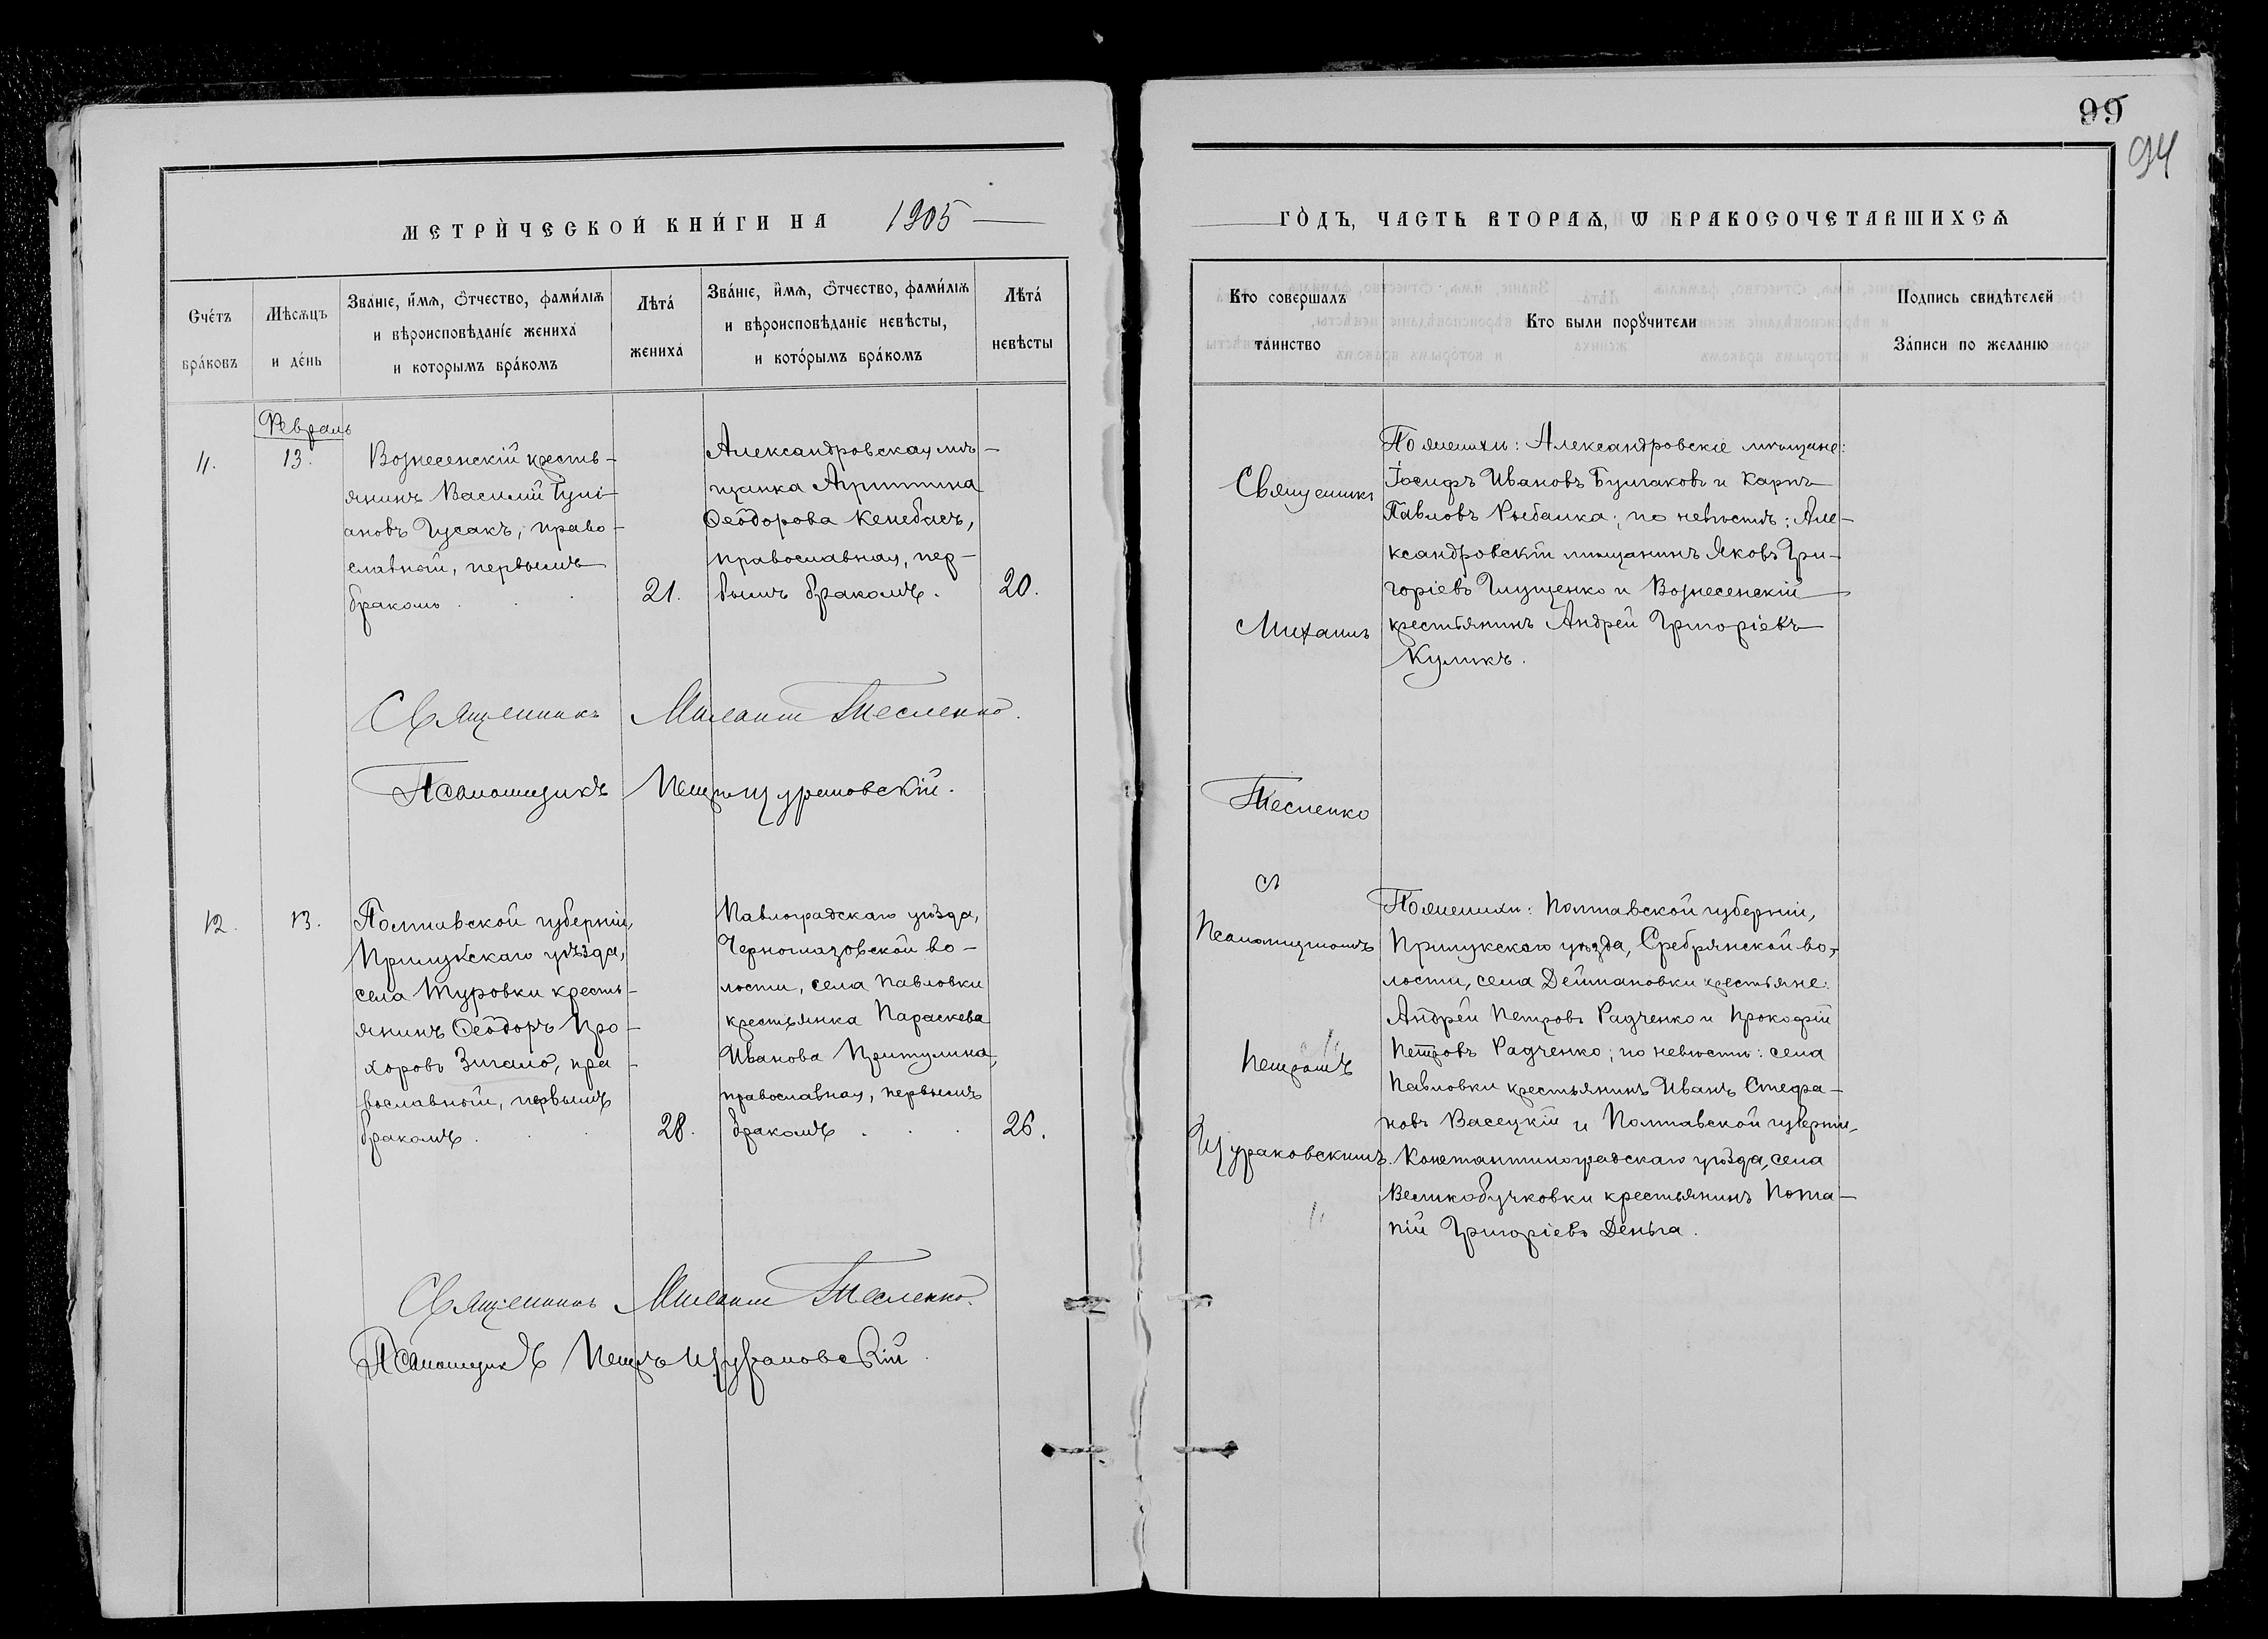 99
94
МЕТРИ́ЧЕСКОЙ КНИ́ГИ НА 1905
ГО́ДЪ, ЧАСТЬ ВТОРАѦ, Ѡ БРАКОСОЧЕТАВШИХСѦ
Сче́тъ
бра́ковъ
Мѣсѧцъ
и де́нь
Зва́нїе, и́мѧ, ѻ҆́тчество, фами́лїѧ
и вѣроисповѣда́нїе жениха̀
и которымъ бра́комъ
Лѣта́
жениха̀
Зва́нїе, и́мѧ, ѻ҆́тчество, фами́лїѧ
и вѣроисповѣда́нїе невѣ́сты,
и кото́рымъ бра́комъ
Лѣта́
невѣ́сты
Кто совершалъ
та́инство
Кто были порꙋ́чители
Подпись свидѣ́телей
За́писи по жела́нїю
Февраль
11.
13.
Вознесенскій кресть-
янинъ Василій
ановъ Гусакъ, право-
славный, первымъ
бракомъ . . .
21.
Александровская мѣ-
щанка Агриппина
Ѳеодорова
православная, пер-
вымъ бракомъ.
20.
Священникъ
Михаилъ
Тесленко
съ
Псаломщикомъ
Петромъ
По женихѣ: Александровскіе мѣщане:
Іосифъ Ивановъ Булгаковъ и Карпъ
Павловъ Рыбалка; по невѣстѣ: Але-
ксандровскій мѣщанинъ Яковъ Гри-
горіевъ Глущенко и Вознесенскій
крестьянинъ Андрей Григоріевъ
Куликъ.
Священникъ Михаилъ Тесленко.
Псаломщикъ Петръ
12.
13.
Полтавской губерніи,
Прилукскаго уѣзда,
села Туровки кресть-
янинъ Ѳеодоръ Про-
хоровъ Зигало, пра-
вославный, первымъ
бракомъ . . .
28.
Павлоградскаго уѣзда,
Черноглазовской во-
лости, села Павловки
крестьянка Параскева
Иванова Притулина,
православная, первымъ
бракомъ . . .
26.
По женихѣ: Полтавской губерніи,
Прилукскаго уѣзда, Сребрянской во-
лости, села Деймановки крестьяне:
Андрей Петровъ Радченко и Прокофій
Петровъ Радченко; по невѣстѣ: села
Павловки крестьянинъ Иванъ Стефа-
новъ Васецкій и Полтавской губерніи,
Константиноградскаго уѣзда, села
Великобучковки крестьянинъ Пота-
пій Григоріевъ Деньга.
Священникъ Михаилъ Тесленко.
Псаломщикъ Петръ